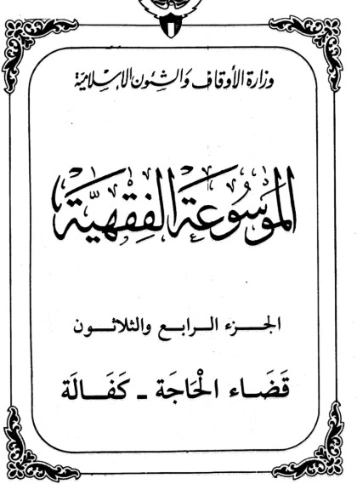 وزارة الأوقاف والشئون الإسلامية
الموسوعة الفقهية
الجـــزء الـرابـع والثلاثـــون
قَضَـاء الْحَاجَة ـ كَفَـالَة